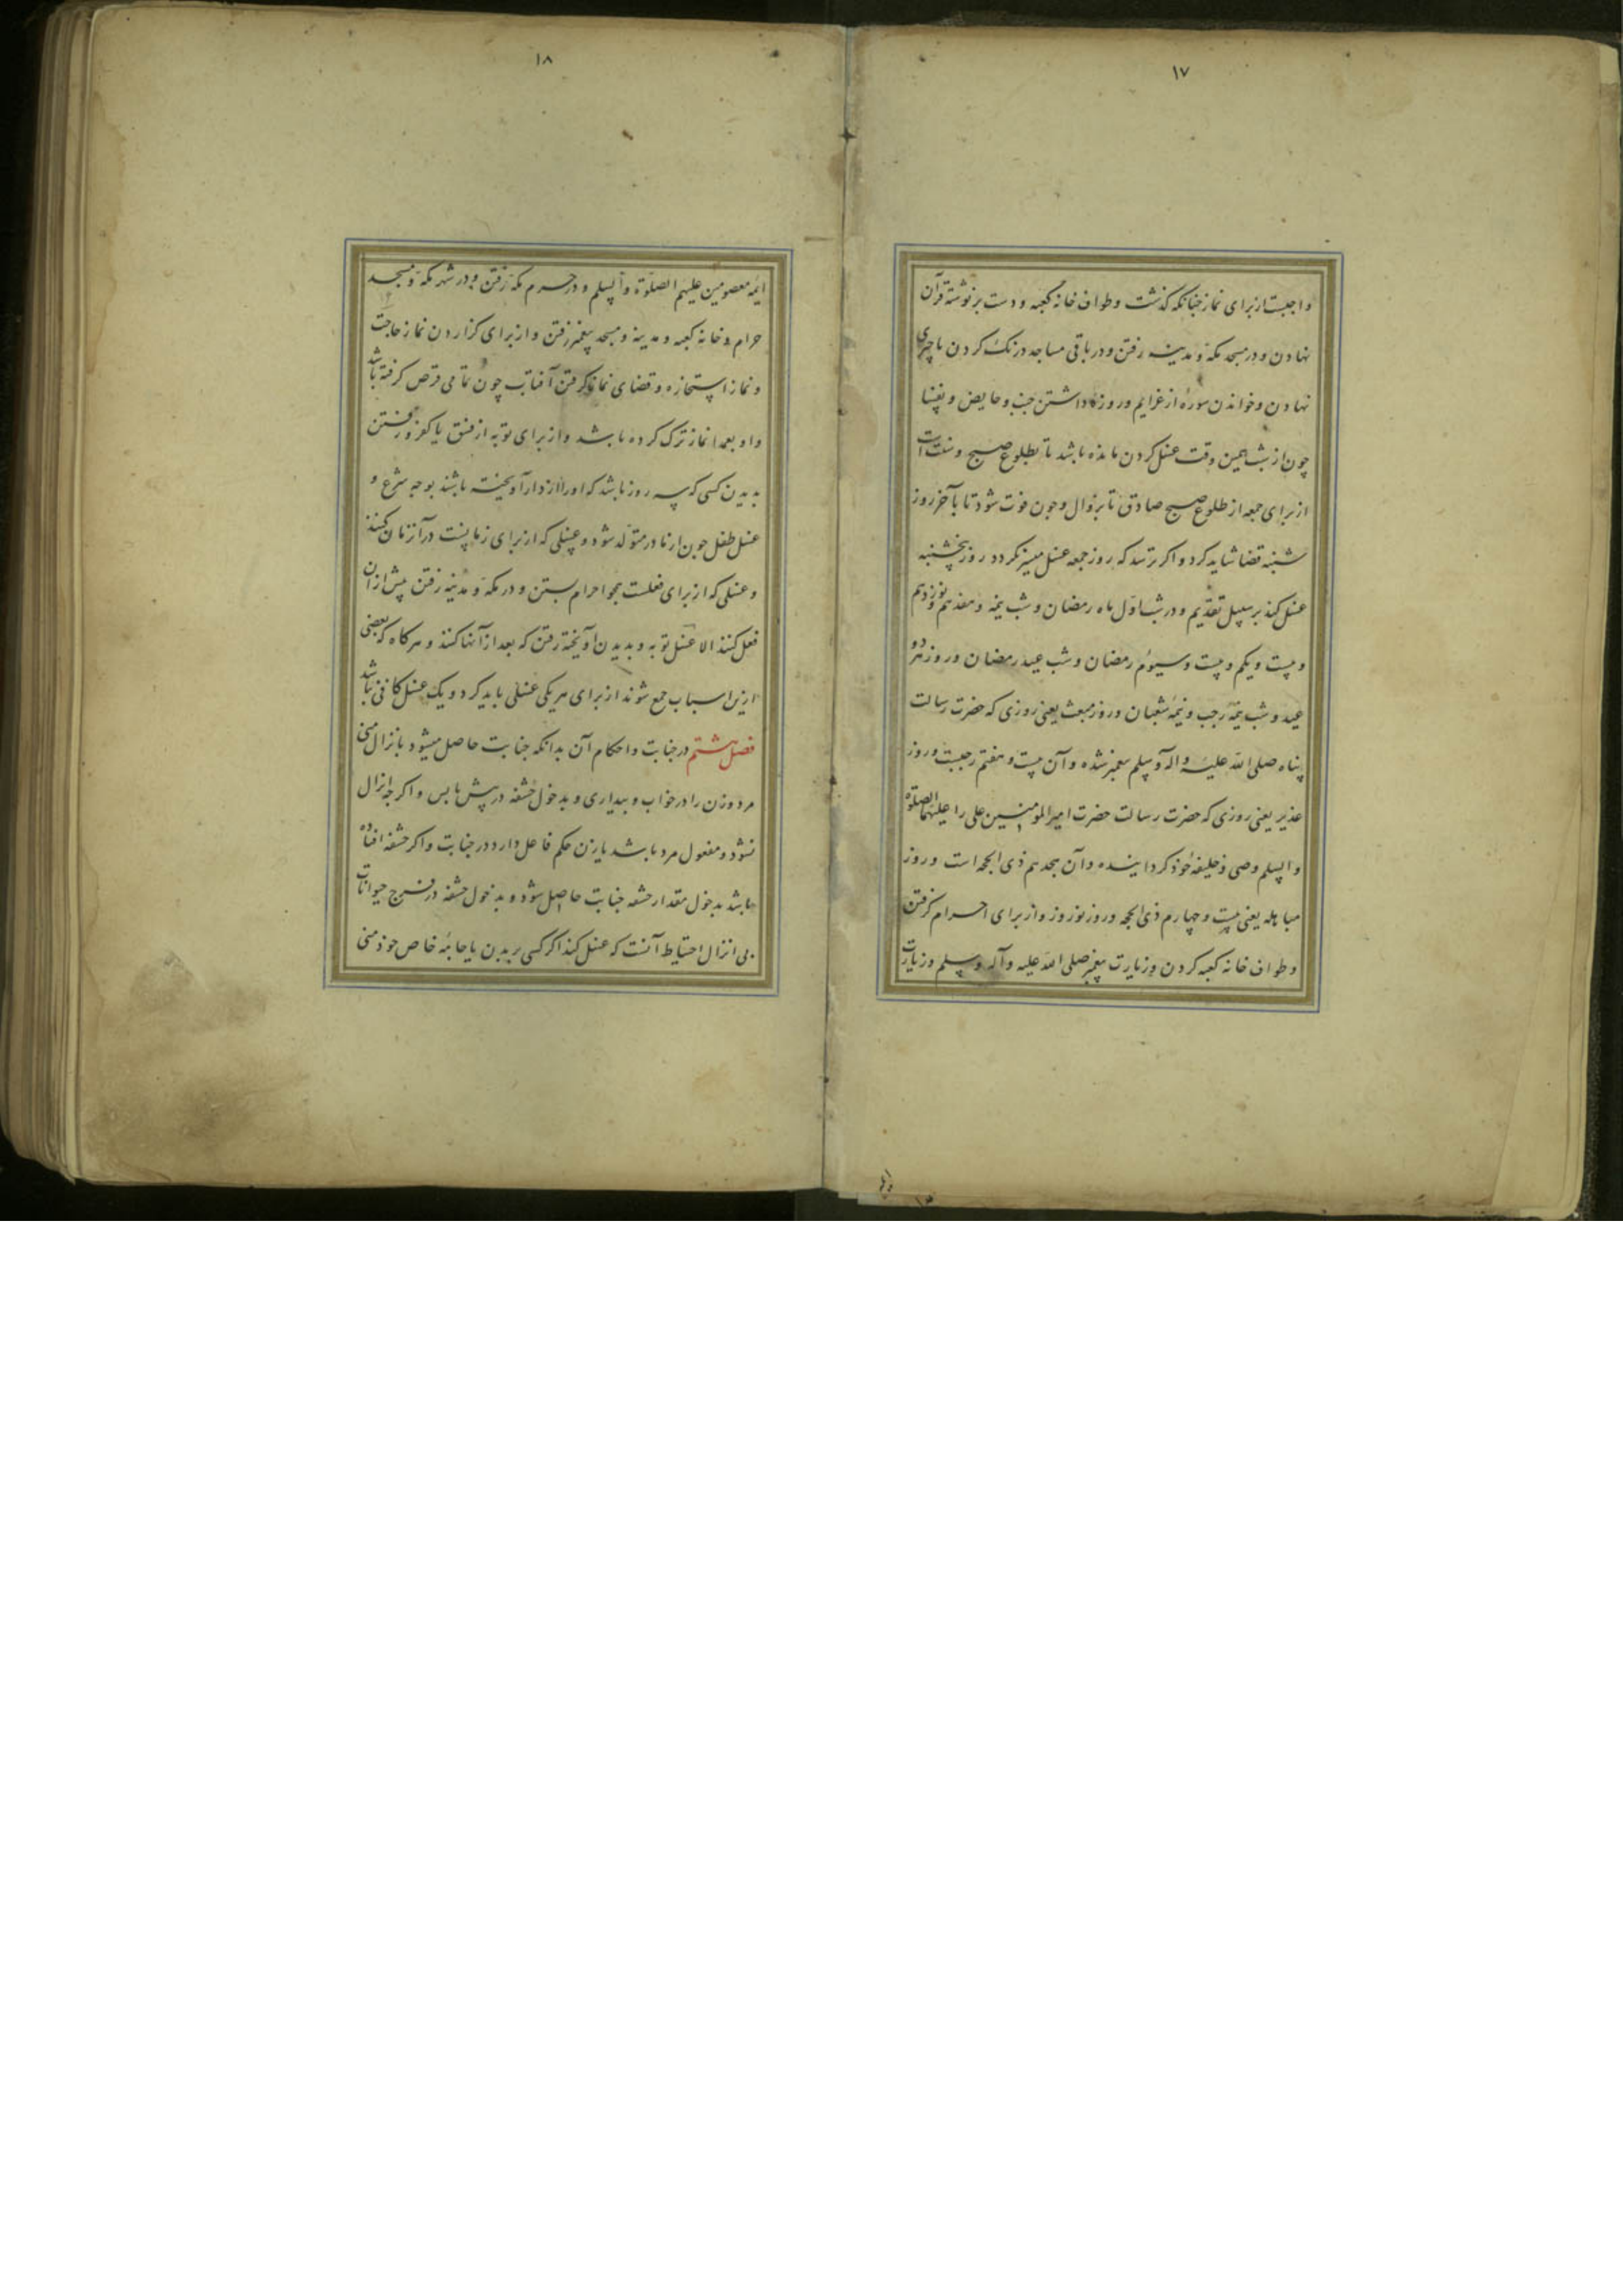 ۱۷
واجبست از برای نماز چنانکه گذشت و طواف خانه کعبه و دست بر نوشتهٔ قرآن
نهادن و در مسجد مکه و مدینه رفتن و در باقی مساجد درنگ کردن یا چیزی
نهادن و خواندن سوره از عزایم و روزه داشتن جنب و حایض و نفسا
چون از شب همین وقت غسل کردن مانده باشد تا بطلوع صبح و سنت است
از برای جمعه از طلوع صبح صادق تا بزوال و چون فوت شود تا بآخر روز
شنبه قضا شاید کرد و اکر ترسد که روز جمعه غسل میسر نکردد روز پنجشنبه
غسل کند بر سبیل تقدیم و در شب اول ماه رمضان و شب نیمه و هفدهم و نوزدهم
و بیست و یکم و بیست و سیوم رمضان و شب عید رمضان و روز هر دو
عید و شب نیمهٔ رجب و نیمهٔ شعبان و روز مبعث یعنی روزی که حضرت رسالت
پناه صلی الله علیه و اله و سلم پیغمبر شده و آن بیست و هفتم رجبست و روز
غدیر یعنی روزی که حضرت رسالت حضرت امیر المومنین علی را علیهما الصلوة
و السلم وصی و خلیفهٔ خود کردانیده و آن هجدهم ذی الحجه است و روز
مباهله یعنی بیست و چهارم ذی الحجه و روز نوروز و از برای احرام کرفتن
و طواف خانه کعبه کردن و زیارت پیغمبر صلی الله علیه و آله و سلم و زیارت
۱۸
ایمهٔ معصومین علیهم الصلوة و السلم و در حرم مکه رفتن و در شهر مکه و مسجد
حرام و خانه کعبه و مدینه و مسجد پیغمبر رفتن و از برای کزاردن نماز حاجت
و نماز استخاره و قضای نماز کرفتن آفتاب چون تمامی قرص کرفته باشد
و او بعمدا نماز ترک کرده باشد و از برای توبه از فسق یا کفر و رفتن
بدیدن کسی که سه روز باشد که او را از دار آویخته باشند بوجه شرع و
غسل طفل چون از مادر متولد شود و غسلی که از برای زمانست در آن زمان کنند
و غسلی که از برای فعلست همچو احرام بستن و در مکه و مدینه رفتن پیش از آن
فعل کنند الا غسل توبه و بدیدن آویخته رفتن که بعد از آنها کنند و هر کاه که بعضی
ازین اسباب جمع شوند از برای هر یکی غسلی باید کرد و یک غسل کافی نباشد
فصل هشتم در جنابت و احکام آن بدانکه جنابت حاصل میشود بانزال منی
مرد و زن را در خواب و بیداری و بدخول حشفه در پیش یا پس و اکر چه انزال
نشود و مفعول مرد باشد یا زن حکم فاعل دارد در جنابت و اکر حشفه افتاده
باشد بدخول مقدار حشفه جنابت حاصل شود و بدخول حشفه در فرج حیوانات
بی انزال احتیاط آنست که غسل کند اکر کسی بر بدن یا جامهٔ خاص خود منی